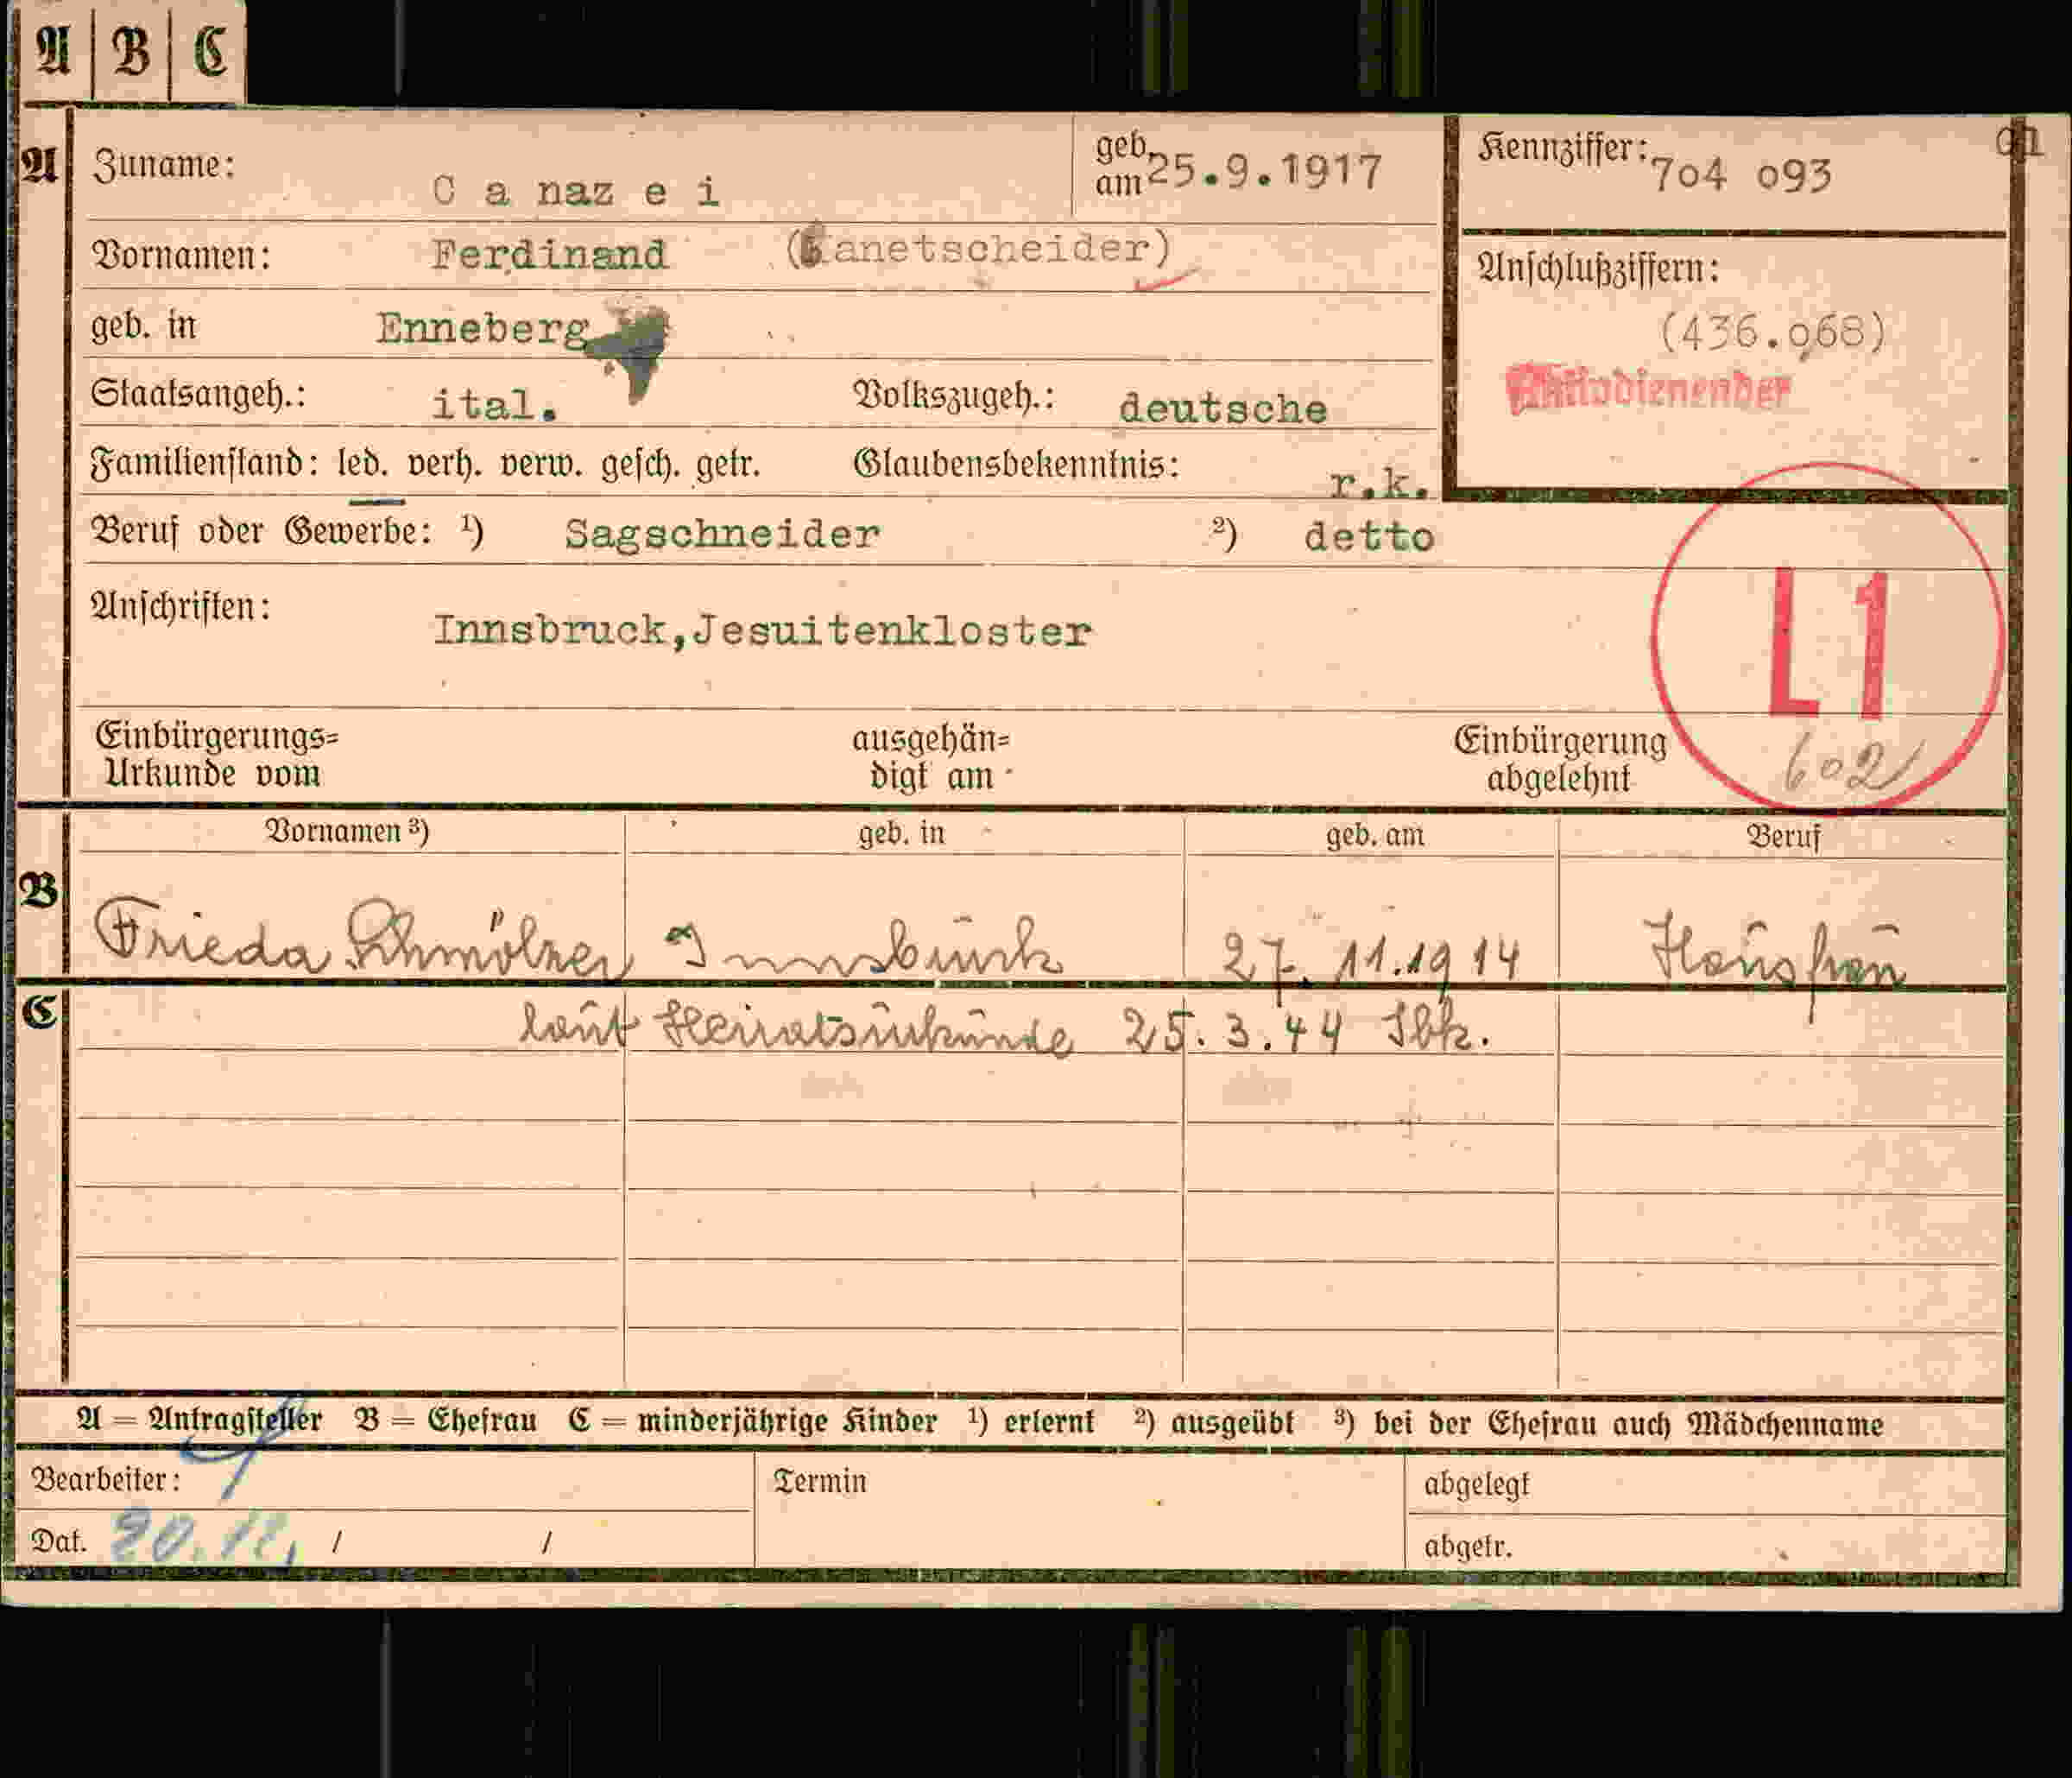 A B C
A Zuname: C a naz e i geb. am 25.9.1917 Kennziffer: 7o4 o93
Vornamen: Ferdinand (Kanetscheider)
Anschlußziffern:
geb. in Enneberg (436.o68)
Staatsangeh.: ital. Volkszugeh.: deutsche
Familienstand: led. verh. verw. gesch. getr. Glaubensbekenntnis: r.k.
Beruf oder Gewerbe: 1) Sagschneider 2) detto
Anschriften: Innsbruck,Jesuitenkloster
L1
Einbürgerungs= ausgehän= Einbürgerung
Urkunde vom digt am abgelehnt 602
Vornamen 3) geb. in geb. am Beruf
B Frieda Schmölzer Innsbruck 27. 11.1914 Hausfrau
C laut Heiratsurkunde 25.3.44 Ibk.
A = Antragsteller B = Ehefrau C = minderjährige Kinder 1) erlernt 2) ausgeübt 3) bei der Ehefrau auch Mädchenname
Bearbeiter: Termin abgelegt
Dat. 20.12. / / abgetr.